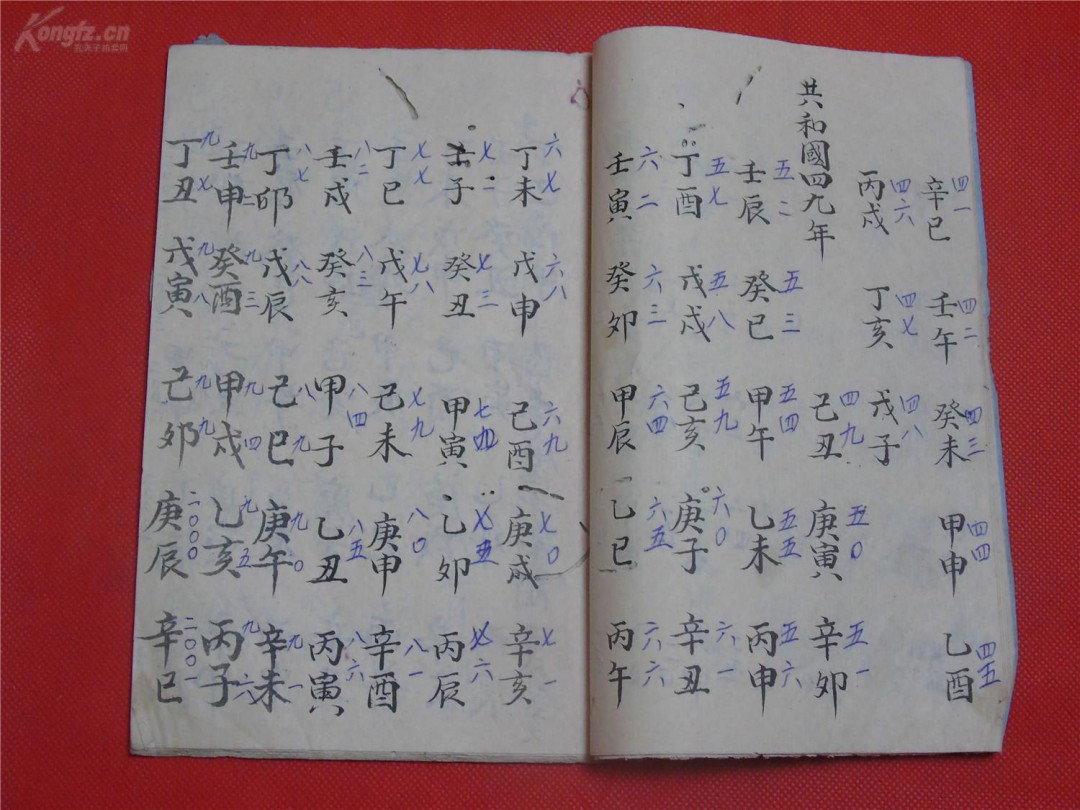 Kongfz.cn
辛巳 四一 壬午 四二 癸未 四三 甲申 四四 乙酉 四五
丙戌 四六 丁亥 四七 戊子 四八
共和國四九年 己丑 四九 庚寅 五〇 辛卯 五一
壬辰 五二 癸巳 五三 甲午 五四 乙未 五五 丙申 五六
丁酉 五七 戊戌 五八 己亥 五九 庚子 六〇 辛丑 六一
壬寅 六二 癸卯 六三 甲辰 六四 乙巳 六五 丙午 六六
丁未 六七 戊申 六八 己酉 六九 庚戌 七〇 辛亥 七一
壬子 七二 癸丑 七三 甲寅 七四 乙卯 七五 丙辰 七六
丁巳 七七 戊午 七八 己未 七九 庚申 八〇 辛酉 八一
壬戌 八二 癸亥 八三 甲子 八四 乙丑 八五 丙寅 八六
丁卯 八七 戊辰 八八 己巳 八九 庚午 九〇 辛未 九一
壬申 九二 癸酉 九三 甲戌 九四 乙亥 九五 丙子 九六
丁丑 九七 戊寅 九八 己卯 九九 庚辰 二〇〇〇 辛巳 二〇〇一